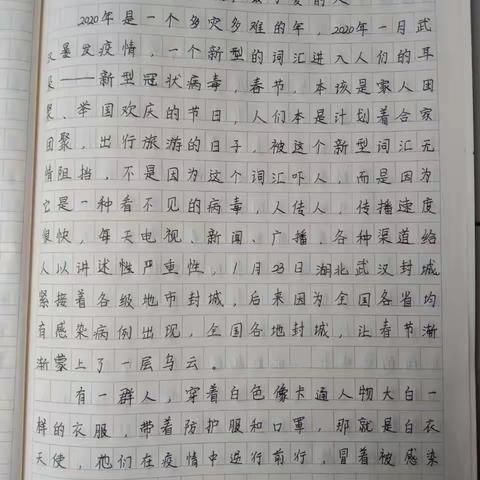 2020年是一个多灾多难的年，2020年一月武
汉暴发疫情，一个新型的词汇进入人们的耳
朵——新型冠状病毒，春节，本该是家人团
聚、举国欢庆的节日，人们本是计划着合家
团聚，出行旅游的日子，被这个新型词汇无
情阻挡，不是因为这个词汇吓人，而是因为
它是一种看不见的病毒，人传人，传播速度
很快，每天电视、新闻、广播、各种渠道给
人以讲述性严重性，1月23日湖北武汉封城，
紧接着各级地市封城，后来因为全国各省均
有感染病例出现，全国各地封城，让春节渐
渐蒙上了一层乌云。
有一群人，穿着白色像卡通人物大白一
样的衣服，带着防护服和口罩，那就是白衣
天使，他们在疫情中逆行前行，冒着被感染